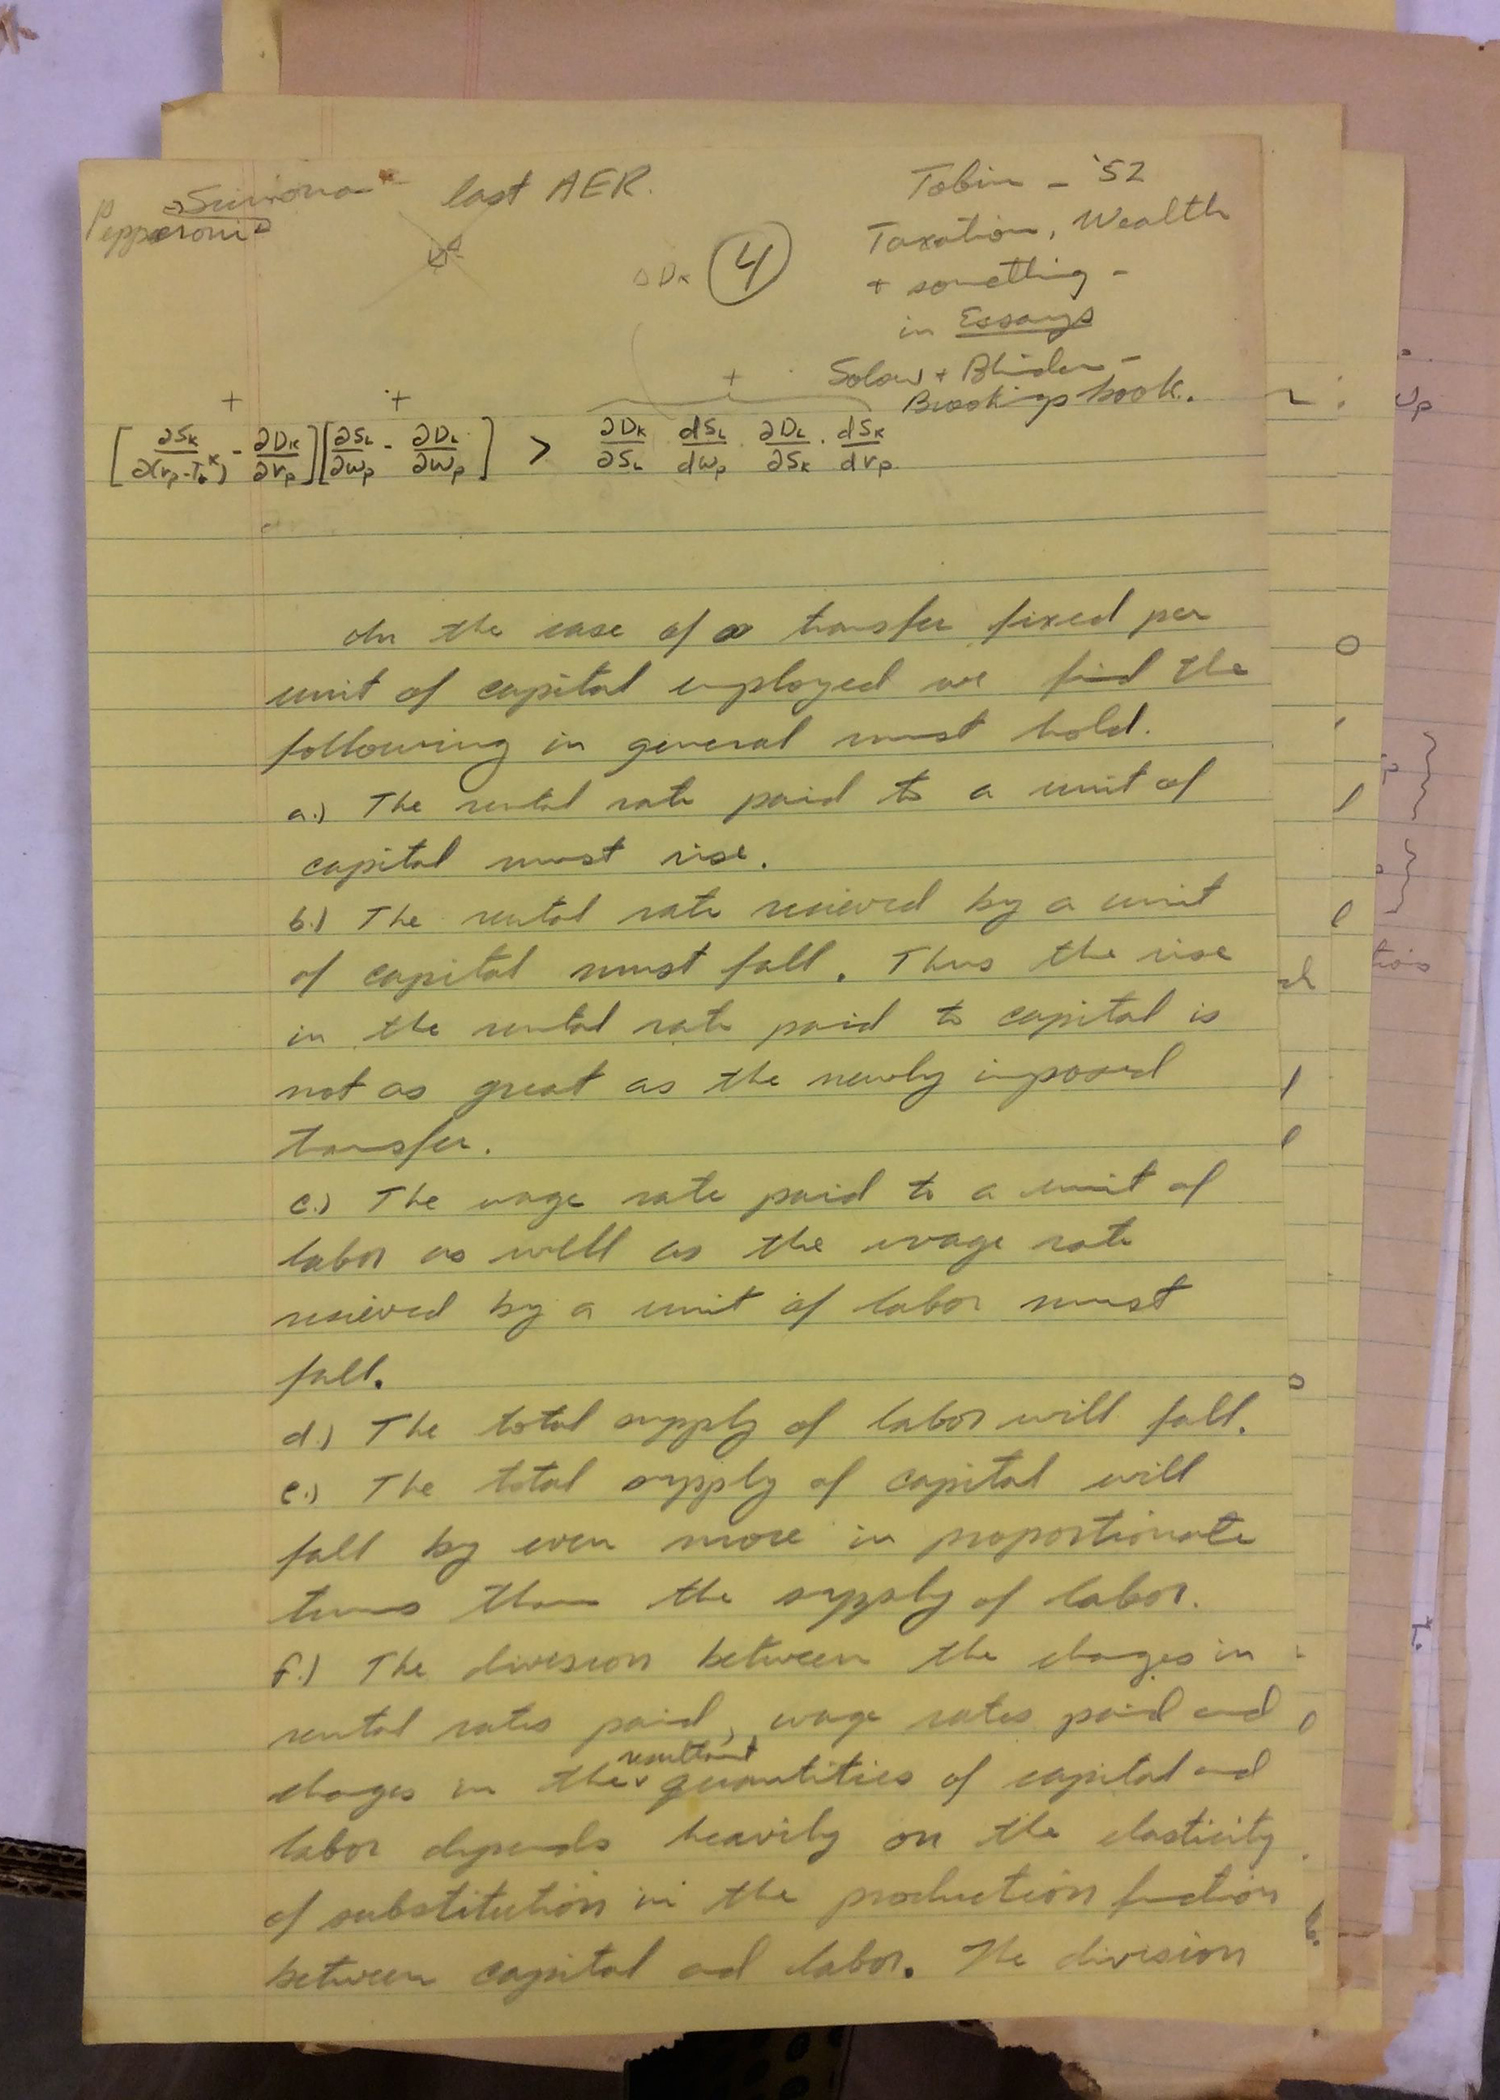 last AER.
Pepperoni
④
Δ DK
Tobin - '52
Taxation, Wealth
+ something -
in Essays
Solow + Blinder -
Brookings book.
+ + +
[∂SK/∂(rp-T₀ᴷ) - ∂DK/∂rp][∂SL/∂wp - ∂DL/∂wp] > ∂DK/∂SL dSL/dwp · ∂DL/∂SK · dSK/drp
In the case of a transfer fixed per
unit of capital employed we find the
following in general must hold.
a.) The rental rate paid to a unit of
capital must rise.
b.) The rental rate recieved by a unit
of capital must fall. Thus the rise
in the rental rate paid to capital is
not as great as the newly imposed
transfer.
c.) The wage rate paid to a unit of
labor as well as the wage rate
recieved by a unit of labor must
fall.
d.) The total supply of labor will fall.
e.) The total supply of capital will
fall by even more in proportionate
terms than the supply of labor.
f.) The division between the changes in
rental rates paid, wage rates paid and
resultant
changes in the quantities of capital and
labor depends heavily on the elasticity
of substitution in the production function
between capital and labor. The division